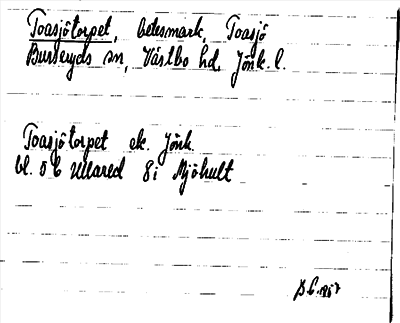 Toasjötorpet, betesmark, Toasjö
Burseryds sn, Västbo hd, Jönk. l.
Toasjötorpet ek. Jönk.
bl. 5C Ullared 8i Mjöhult
1967